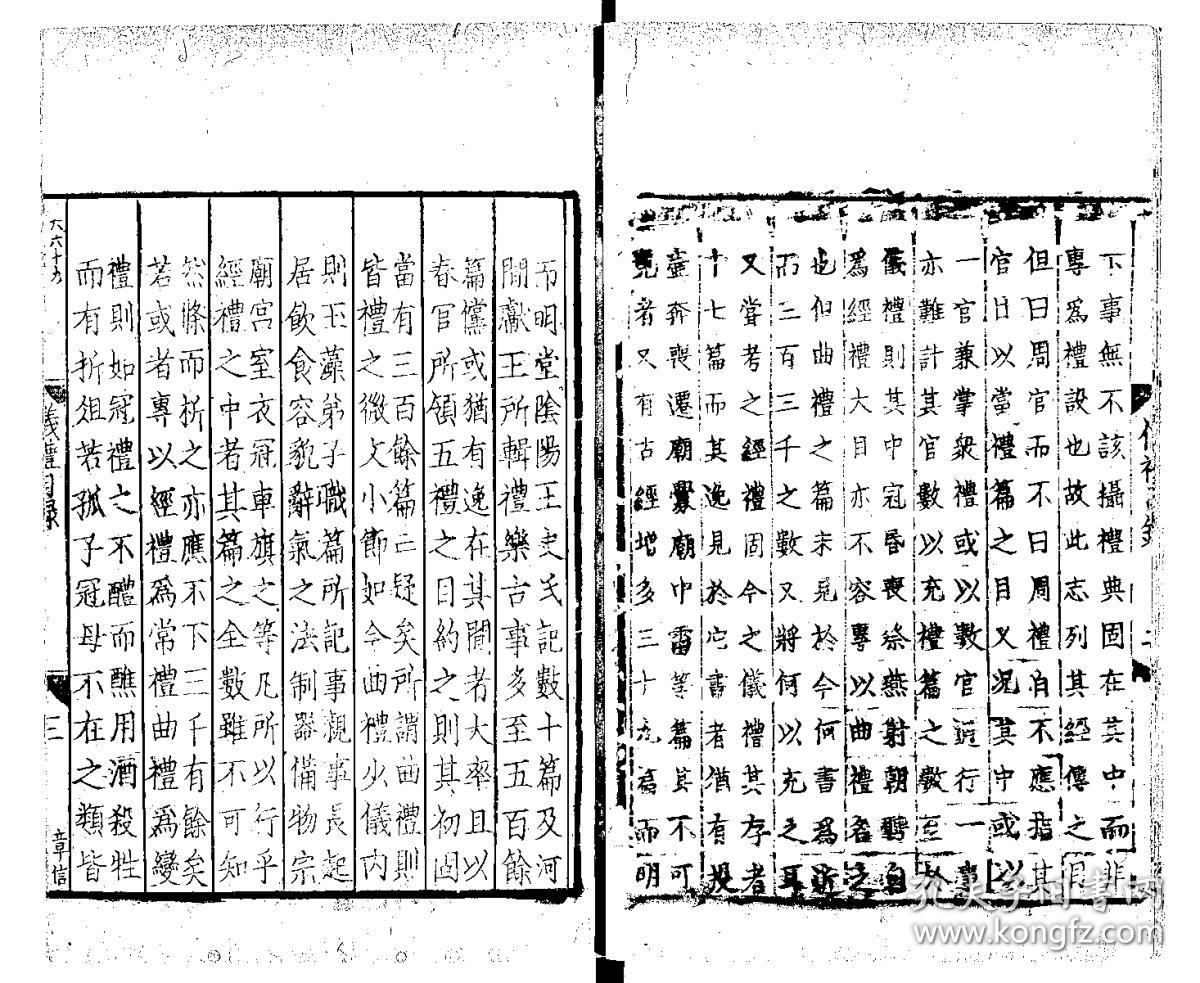 下事無不該攝禮典固在其中而非
專爲禮設也故此志列其經傳之目
但曰周官而不曰周禮自不應指其
官目以當禮篇之目又况其中或以
一官兼掌衆禮或以數官通行一事
亦難計其官數以充禮篇之數至於
儀禮則其中冠昏喪祭燕射朝聘自
爲經禮大目亦不容專以曲禮名之
也但曲禮之篇未見於今何書爲近
而三百三千之數又將何以充之耳
又嘗考之經禮固今之儀禮其存者
十七篇而其逸見於它書者猶有投
壷奔喪遷廟釁廟中霤等篇其不可
見者又有古經增多三十九篇而明
儀禮目錄
二
而明堂陰陽王史氏記數十篇及河
間獻王所輯禮樂古事多至五百餘
篇儻或猶有逸在其間者大率且以
春官所領五禮之目約之則其初固
當有三百餘篇亡疑矣所謂曲禮則
皆禮之微文小節如今曲禮少儀内
則玉藻弟子職篇所記事親事長起
居飲食容貌辭氣之法制器備物宗
廟宮室衣冠車旗之等凡所以行乎
經禮之中者其篇之全數雖不可知
然條而析之亦應不下三千有餘矣
若或者專以經禮爲常禮曲禮爲變
禮則如冠禮之不醴而醮用酒殺牲
而有折俎若孤子冠母不在之類皆
六六十九
儀禮目録
三
章信
孔夫子旧书网
www.kongfz.com